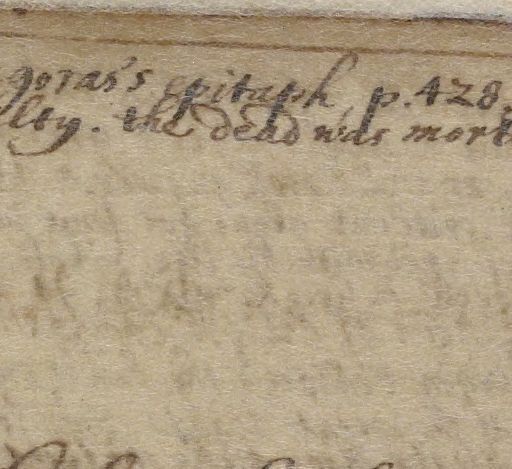 goras's epitaph, p. 428.
lty. the dead was mort